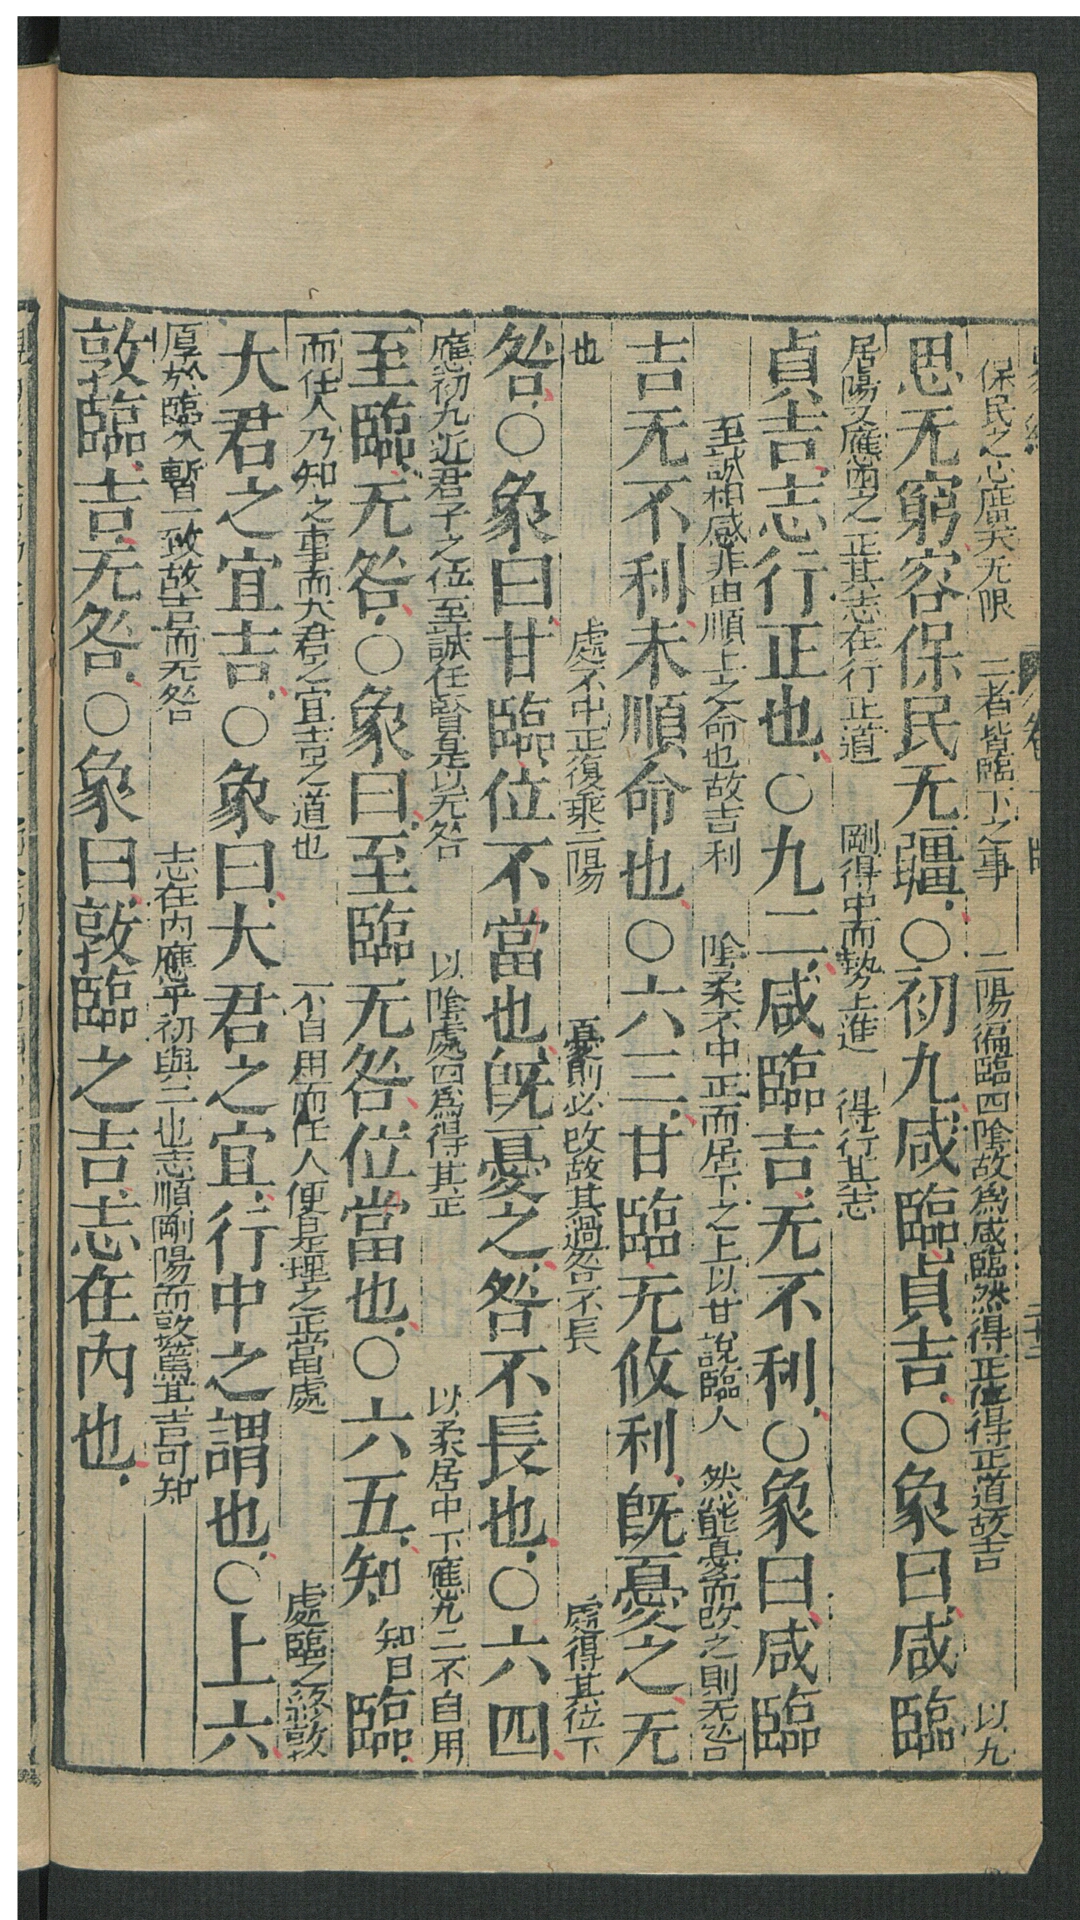 保民之心廣大无限　二者皆臨下之事　二陽徧臨四陰故爲咸臨然得正位得正道故吉　以九
思无窮容保民无疆○初九咸臨貞吉○象曰咸臨
居陽又應四之正其志在行正道　剛得中而勢上進　得行其志
貞吉志行正也○九二咸臨吉无不利○象曰咸臨
至誠相感非由順上之命也故吉利　陰柔不中正而居下之上以甘說臨人　然能憂而改之則无咎
吉无不利未順命也○六三甘臨无攸利旣憂之无
也　處不中正復乘二陽　憂則必改故其過咎不長　處得其位下
咎○象曰甘臨位不當也旣憂之咎不長也○六四
應初九近君子之位至誠任賢是以无咎　以陰處四爲得其正　以柔居中下應九二不自用
至臨无咎○象曰至臨无咎位當也○六五知知曰臨
而任人乃知之事而大君之宜吉之道也　不自用而任人便是理之正當處　處臨之終敦
大君之宜吉○象曰大君之宜行中之謂也○上六
厚於臨久暫一致故吉而无咎　志在內應乎初與二也志順剛陽而敦篤其吉可知
敦臨吉无咎○象曰敦臨之吉志在內也